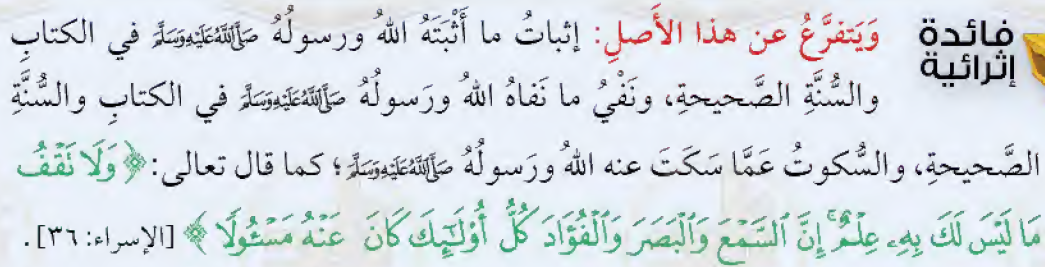 فائدة إثرائية
وَيَتفرَّعُ عن هذا الأَصلِ: إثباتُ ما أَثْبَتَهُ اللهُ ورسولُهُ صَلَّى اللَّهُ عَلَيْهِ وَسَلَّمَ في الكتابِ
والسُّنَّةِ الصَّحيحةِ، ونَفْيُ ما نَفاهُ اللهُ ورَسولُهُ صَلَّى اللَّهُ عَلَيْهِ وَسَلَّمَ في الكتابِ والسُّنَّةِ
الصَّحيحةِ، والسُّكوتُ عَمَّا سَكَتَ عنه اللهُ ورَسولُهُ صَلَّى اللَّهُ عَلَيْهِ وَسَلَّمَ؛ كما قال تعالى: ﴿وَلَا نَقْفُ
مَا لَيْسَ لَكَ بِهِۦ عِلْمٌ ۚ إِنَّ ٱلسَّمْعَ وَٱلْبَصَرَ وَٱلْفُؤَادَ كُلُّ أُوْلَٰٓئِكَ كَانَ عَنْهُ مَسْـُٔولًا﴾ [الإسراء: ٣٦].